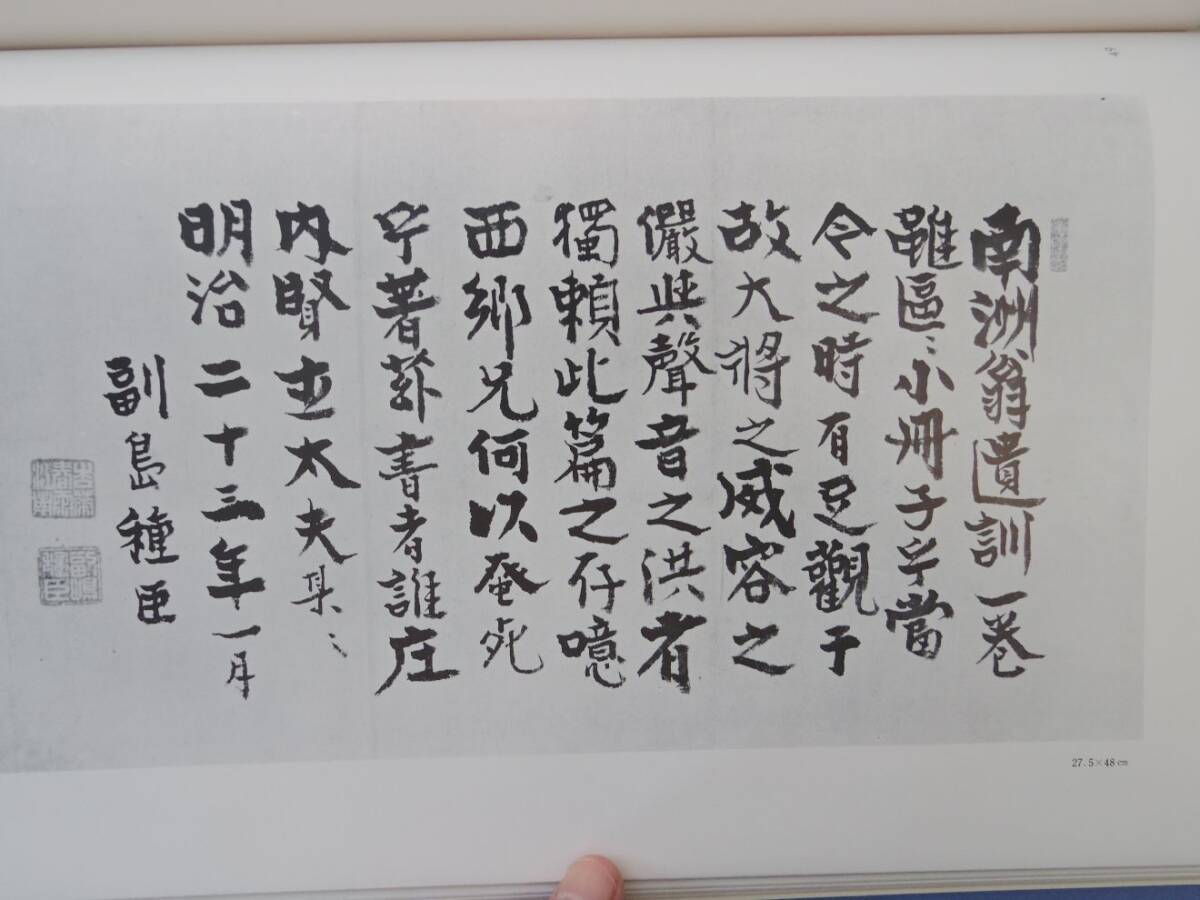 南洲翁遺訓一巻
雖區〻小冊子乎當
今之時有足觀于
故大將之威容之
儼與聲音之洪者
獨頼此篇之存噫
西郷兄何以蚤死
乎著茲書者誰庄
内賢士太夫某〻
明治二十三年一月
副島種臣
27.5×48㎝